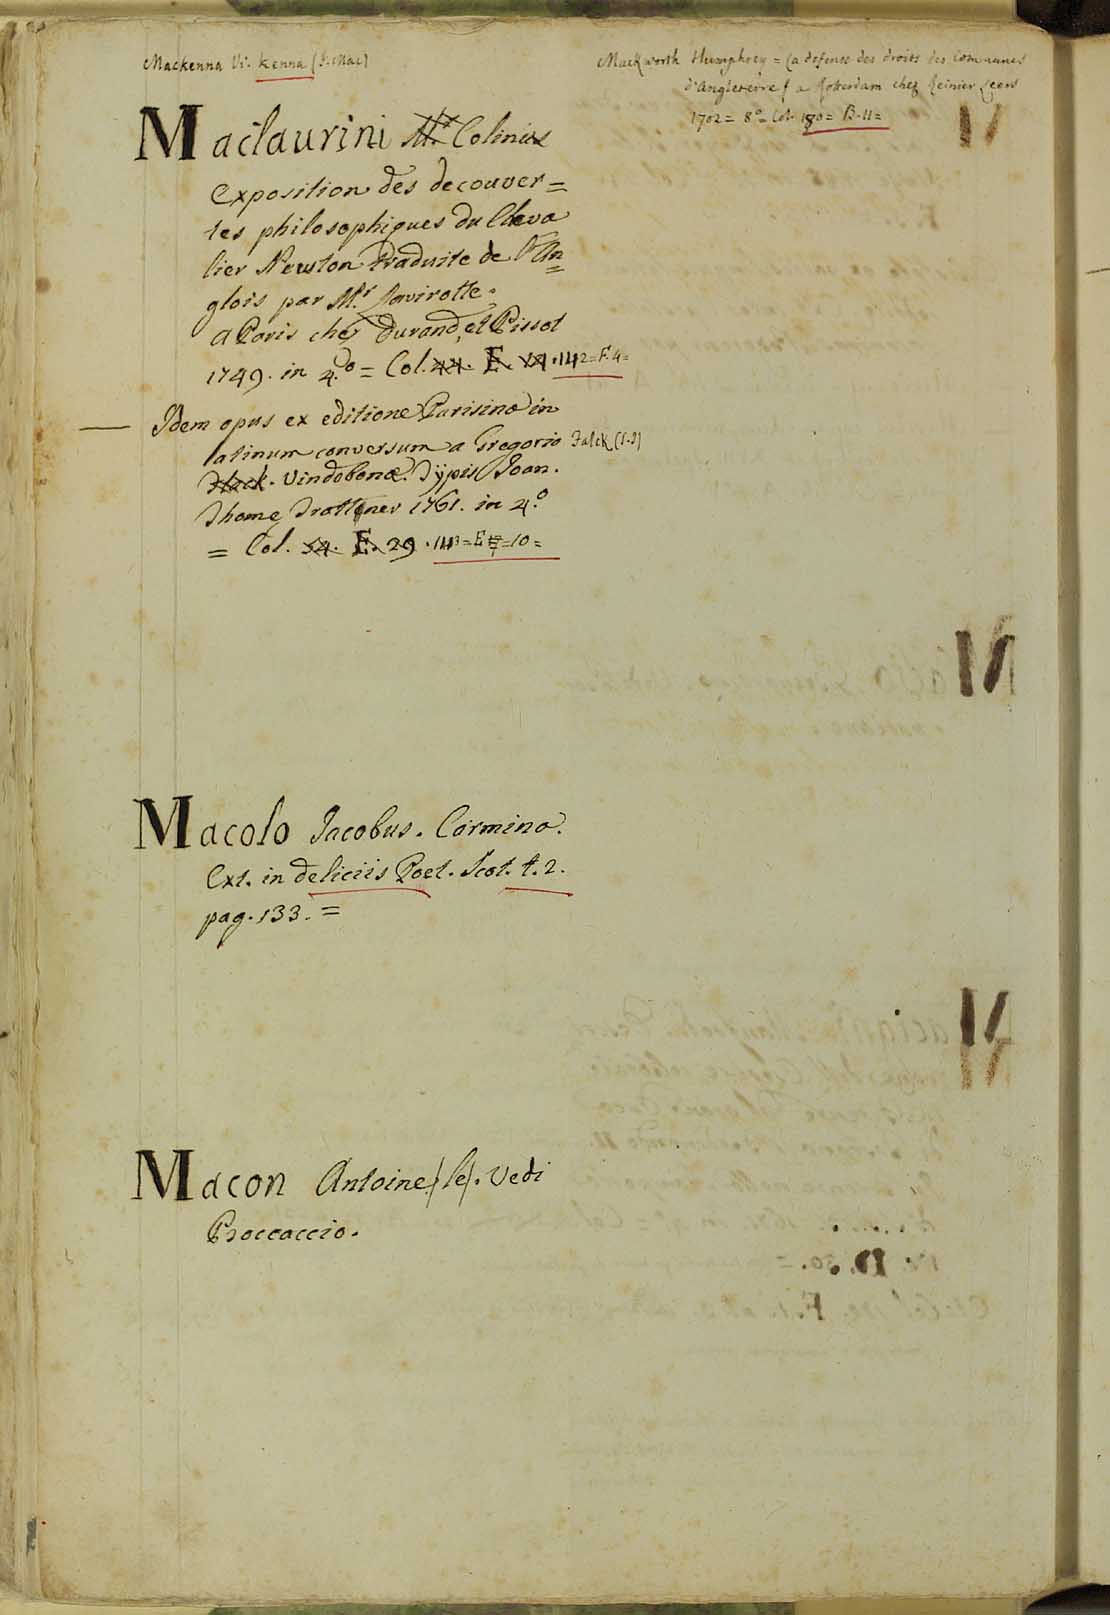 Mackenna Vi. Kenna (J. Mac)
Mackworth Humphrey = La defense des droits des communes
d'Angleterre / a Roterdam chez Reinier Leers
1702 = 8º= Col. 180= B.11=
Maclaurini Mr. Colinus
Exposition des decouver=
tes philosophiques du Cheva
lier Newton traduite de l'An
glois par Mr. Lavirotte.
A Paris chez Durand, et Pissot
1749. in 4.º = Col. 44. E. 14. 142=F.4=
— Idem opus ex editione Parisina in
latinum conversum a Gregorio Falck (S.J)
Vindobonæ. Typis Joan.
Thomę Trattner 1761. in 4.º
= Col. 54. E. 29. 143=E=10=
Macolo Jacobus. Carmina.
Ext. in deliciis Poet. Scot. t. 2.
pag. 133. =
Macon Antoine (le). Vedi
Boccaccio.